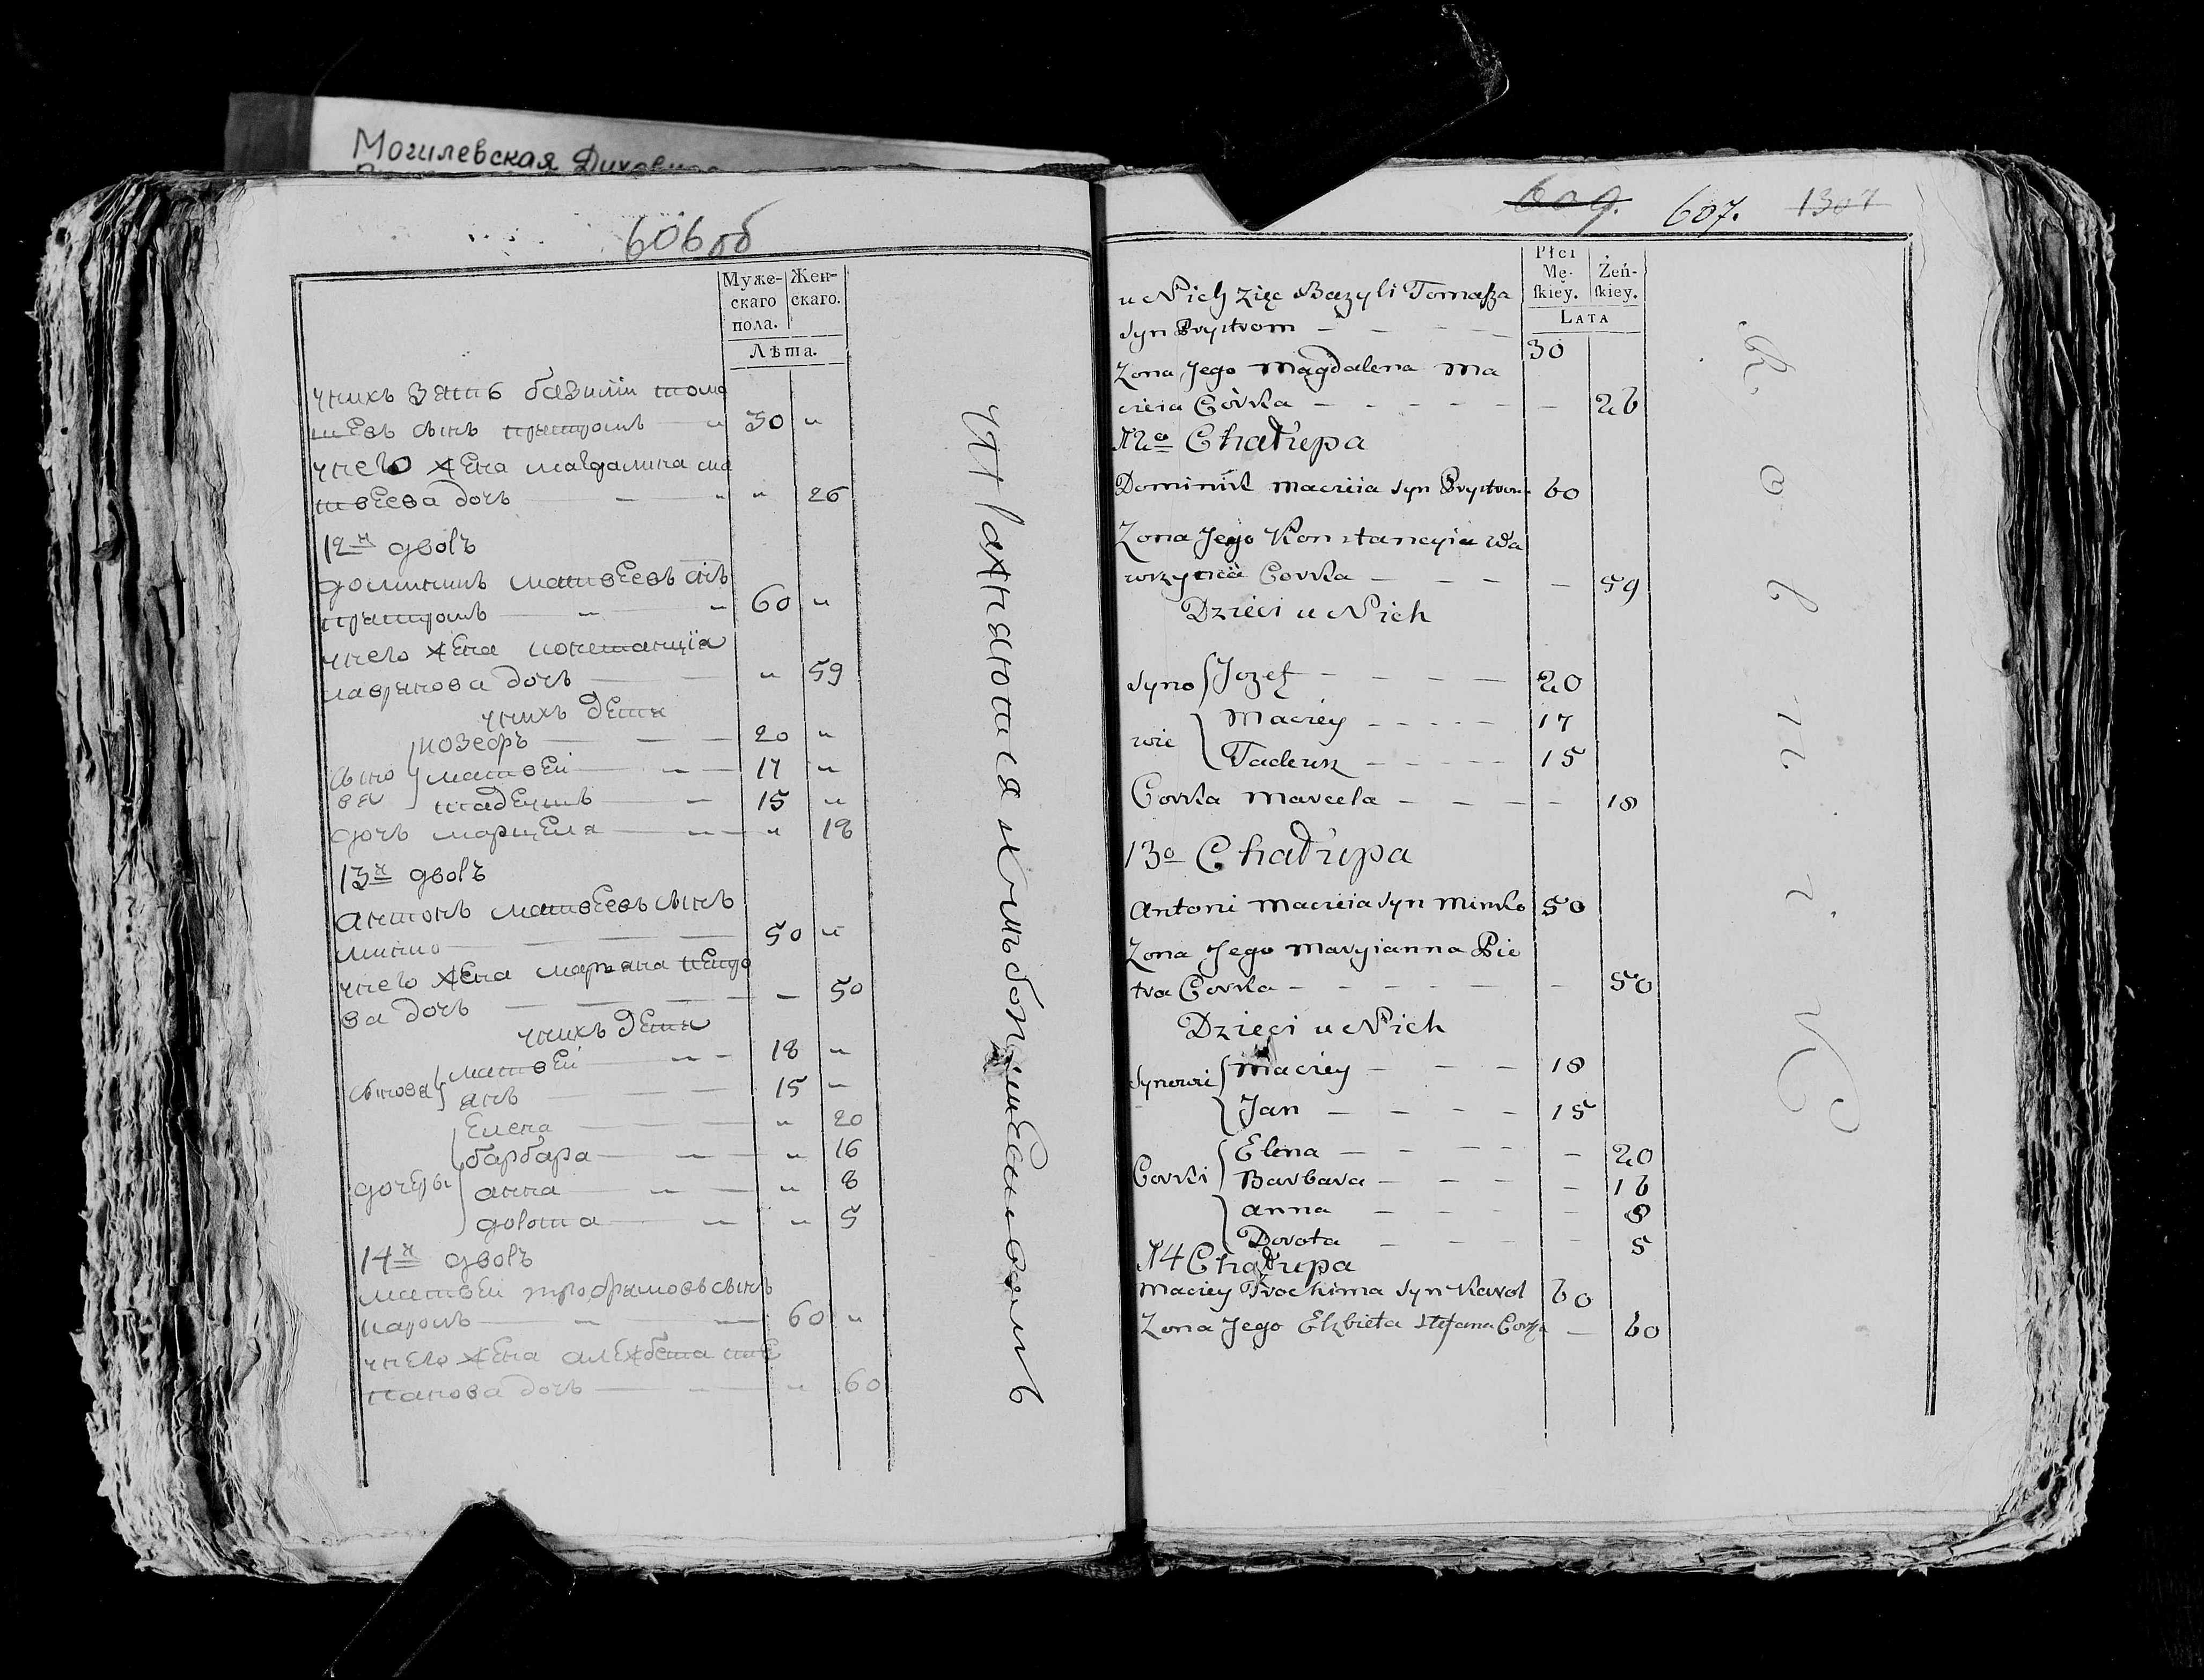 Могилевская Духовн
606 об
Муже-
скаго
пола.
Жен-
скаго.
Лѣта.
унихъ зять базилiи тома
шевъ сынъ прыстромъ 30
унего жена магдалина ма
твеева дочь 26
12й дворъ
доминикъ матвеевъ снъ
прыстромъ 60
унего жена констанцїа
лаврынова дочь 59
унихъ дети
сыно
ва
иозефъ 20
матвей 17
тадеушъ 15
дочъ марцела 18
13й дворъ
антонъ матвеевъ сынъ
минко 50
унего жена марыана петро
ва дочъ 50
унихъ дети
сынова
матвей 18
янъ 15
дочеры
елена 20
барбара 16
анна 8
дорота 5
14й дворъ
матвей трофымовъ сынъ
кароль 60
унего жена алежбета сте
панова дочъ 60
609. 607. 1307
Płci
Mę-
ſkiey.
Żeń-
ſkiey.
LATA
u Nich zięc Bazyli Tomasza
syn Prystrom - - - - 30
Zona Jego Magdalena Ma
cieia Córka - - - - - - 26
12o Chałupa
Dominik Macieia syn Prystrom 60
Zona Jego Konstancyia Wa
wrzynca Corka - - - - 59
Dzieci u Nich
Syno
wie
Jozef - - - - 20
Maciey - - - - 17
Tadeusz - - - - - 15
Corka Marcela - - - - 18
13o Chałupa
Antoni Macieia syn Minko 50
Zona Jego Maryianna Pie
tra Corka - - - - - - 50
Dzieci u Nich
Synowie
Maciey - - - 18
Jan - - - - 15
Corki
Elena - - - - - 20
Barbara - - - - 16
Anna - - - - 8
Dorota - - - - 5
14 Chałupa
Maciey Trochima syn Karol 60
Zona Jego Elzbieta Stefana Corka - 60